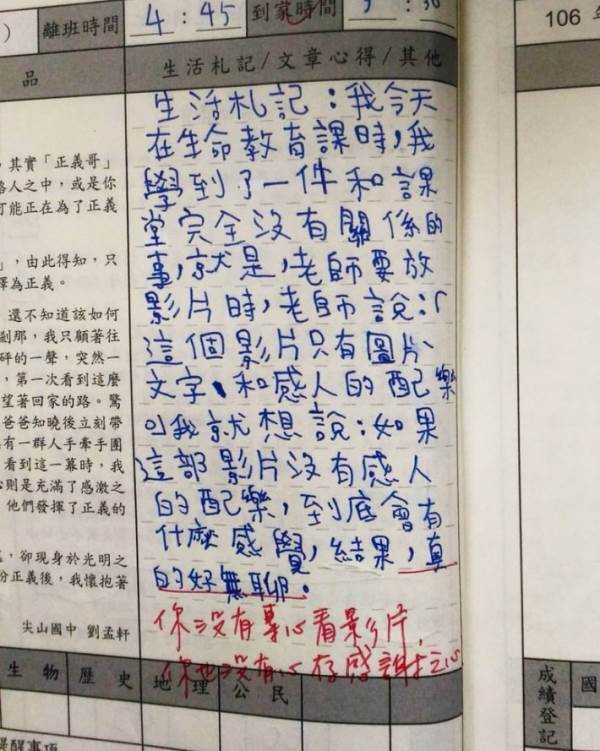 離班時間 4:45 到家時間
106
品 生活札記/文章心得/其他
生活札記：我今天
在生命教育課時，我
學到了一件和課
堂完全沒有關係的
事，就是，老師要放
影片時，老師說：「
這個影片只有圖片、
文字、和感人的配樂
」我就想說：如果
這部影片沒有感人
的配樂，到底會有
什麼感覺，結果，真
的好無聊。
你沒有專心看影片，
你也沒有心存感謝之心
，其實「正義哥」
路人之中，或是你
可能正在為了正義
」，由此得知，只
為正義。
還不知道該如何
剎那，我只顧著往
砰的一聲，突然一
，第一次看到這麼
望著回家的路。驚
爸爸知曉後立刻帶
有一群人手牽手圍
看到這一幕時，我
則是充滿了感激之
他們發揮了正義的
，卻現身於光明之
分正義後，我懷抱著
尖山國中 劉孟軒
生物 歷史 地理 公民
成績登記
國
醒事項